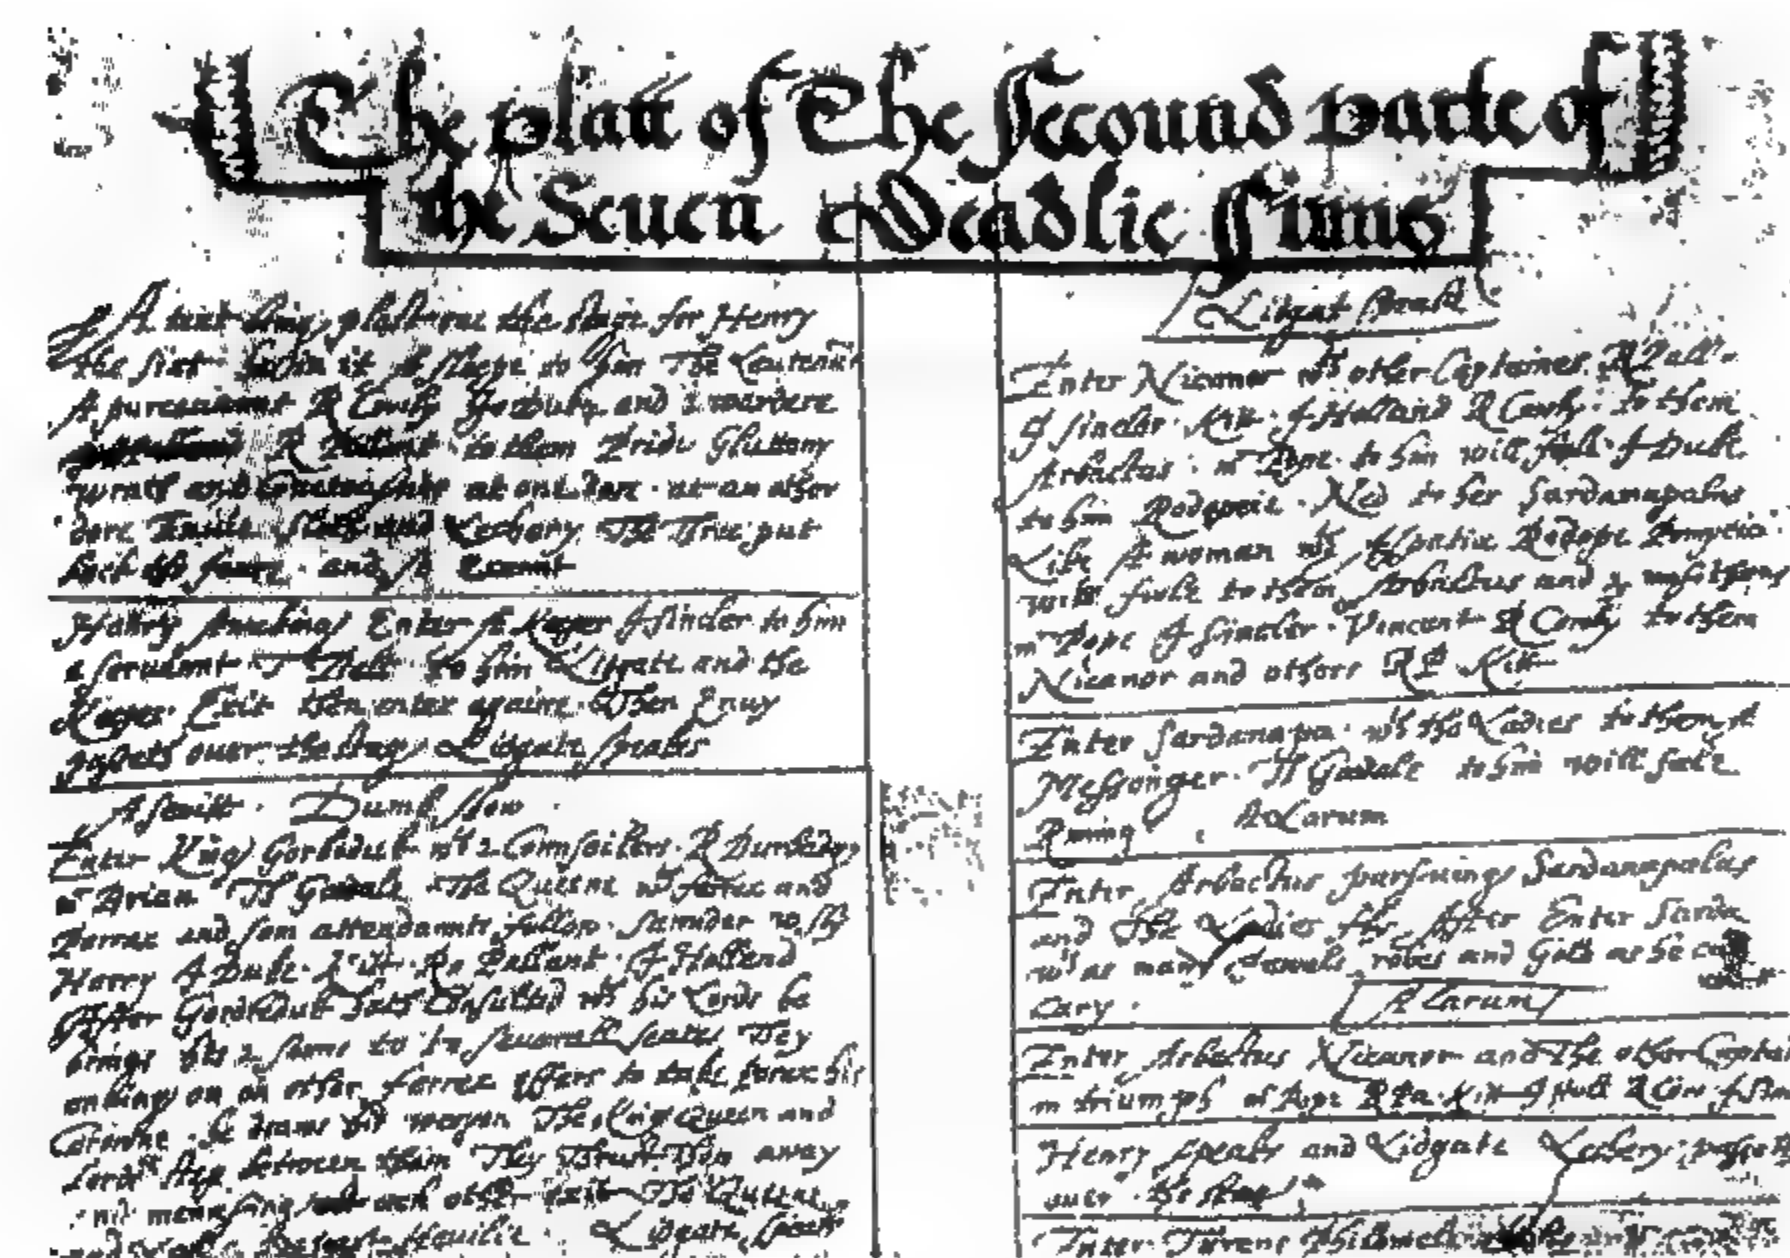 The platt of The secound parte of
the Seuen Deadlie sinns
A tent being plast one the stage for Henry
the sixt in it A sleepe to him The Leutenãt
A purceuaunt R Cowly and i warder
R Pallant to them Pride Gluttony
Wrath and Couetousnes at one dore at an other
dore Enuie Sloth and Lechery The Three put
back the foure and so Exeunt
Henry Awaking Enter A Keeper J sincler to him
a seruaunt T Belt to him Lidgate and the
Keeper Exit then enter againe Then Enuy
passeth ouer the stag Lidgate speakes
A senitt Dumb show
Enter King Gorboduk wth 2 Counsailers R Burbadg
mr Brian Th Goodale The Queene wth ferrex and
Porrex and som attendaunts follow saunder w sly
Harry J Duke Kitt Ro Pallant J Holland
After Gordbeduk hath Consulted wth his Lords he
brings his 2 sonns to to seuerall seates They
enuing on on other ferrex offers to take Porex his
Corowne he draws his weopon The King Queen and
Lords step between them They Thrust Them away
and menasing ech other exit The Queene
Lidgate speakes
Lidgat speake
Enter Nicanor wth other Captaines R Pall
J sincler Kitt J Holland R Cowly to them
Arbactus mr Pope to him will foole J Duke
to him Rodopeie Ned to her Sardanapalus
Like A woman wth Aspatia Rodope Pompeia
will foole to them Arbactus and 3 musitions
mr Pope J sincler Vincent R Cowly to them
Nicanor and others R P Kitt
Enter sardanapa wth the Ladies to them A
Messenger Th Goodale to him will foole
Runing A Larum
Enter Arbactus pursuing Sardanapalus
and The Ladies fly After Enter Sarda
wth as many Jewels robes and Gold as he ca
cary
A Larum
Enter Arbactus Nicanor and The other Captai
in triumph mr Pope R Pa Kitt J Holl R Cow J Sin
Henry speaks and Lidgate Lechery passeth
ouer the stag
Enter Tereus Philomele